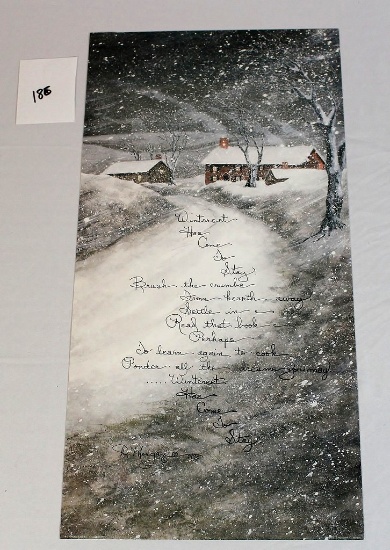 186
Winterset
Has
Come
To
Stay
Brush the crumbs
From hearth away
Settle in
Read that book
Perhaps
To learn again to cook
Ponder all the dreams you may
..... Winterset
Has
Come
To
Stay